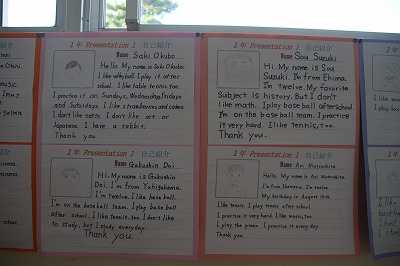 1年 Presentation 1 自己紹介
Name Saki Okubo
Hello. My name is Saki Okubo.
I like volleyball. I play it after
school. I like table tennis, too.
I practice it on Sundays, Wednesdays, Fridays
and Saturdays. I like strawberries and cakes.
I don't like natto. I don't like art or
Japanese. I have a rabbit.
Thank you.
1年 Presentation 1 自己紹介
Name Sou Suzuki
Hi. My name is Sou
Suzuki. I'm from Ehima.
I'm twelve. My favorite
subject is history. But I don't
like math. I play baseball after school.
I'm on the baseball team. I practice
it very hard. I like tennis, too.
Thank you.
1年 Presentation 1 自己紹介
Name Gakushin Doi
Hi. My name is Gakushin
Doi. I'm from Yuhigahama.
I'm twelve. I like baseball.
I'm on the baseball team. I play baseball
after school. I like tennis, too. I don't like
to study, but I study everyday.
Thank you.
1年 Presentation 1 自己紹介
Name Aoi Matsushita
Hello. My name is Aoi Matsushita.
I'm from I'm twelve.
My birthday is August
I like tennis. I play tennis after school.
I practice it very hard. I like music, too.
I play the piano. I practice it every day.
Thank you.